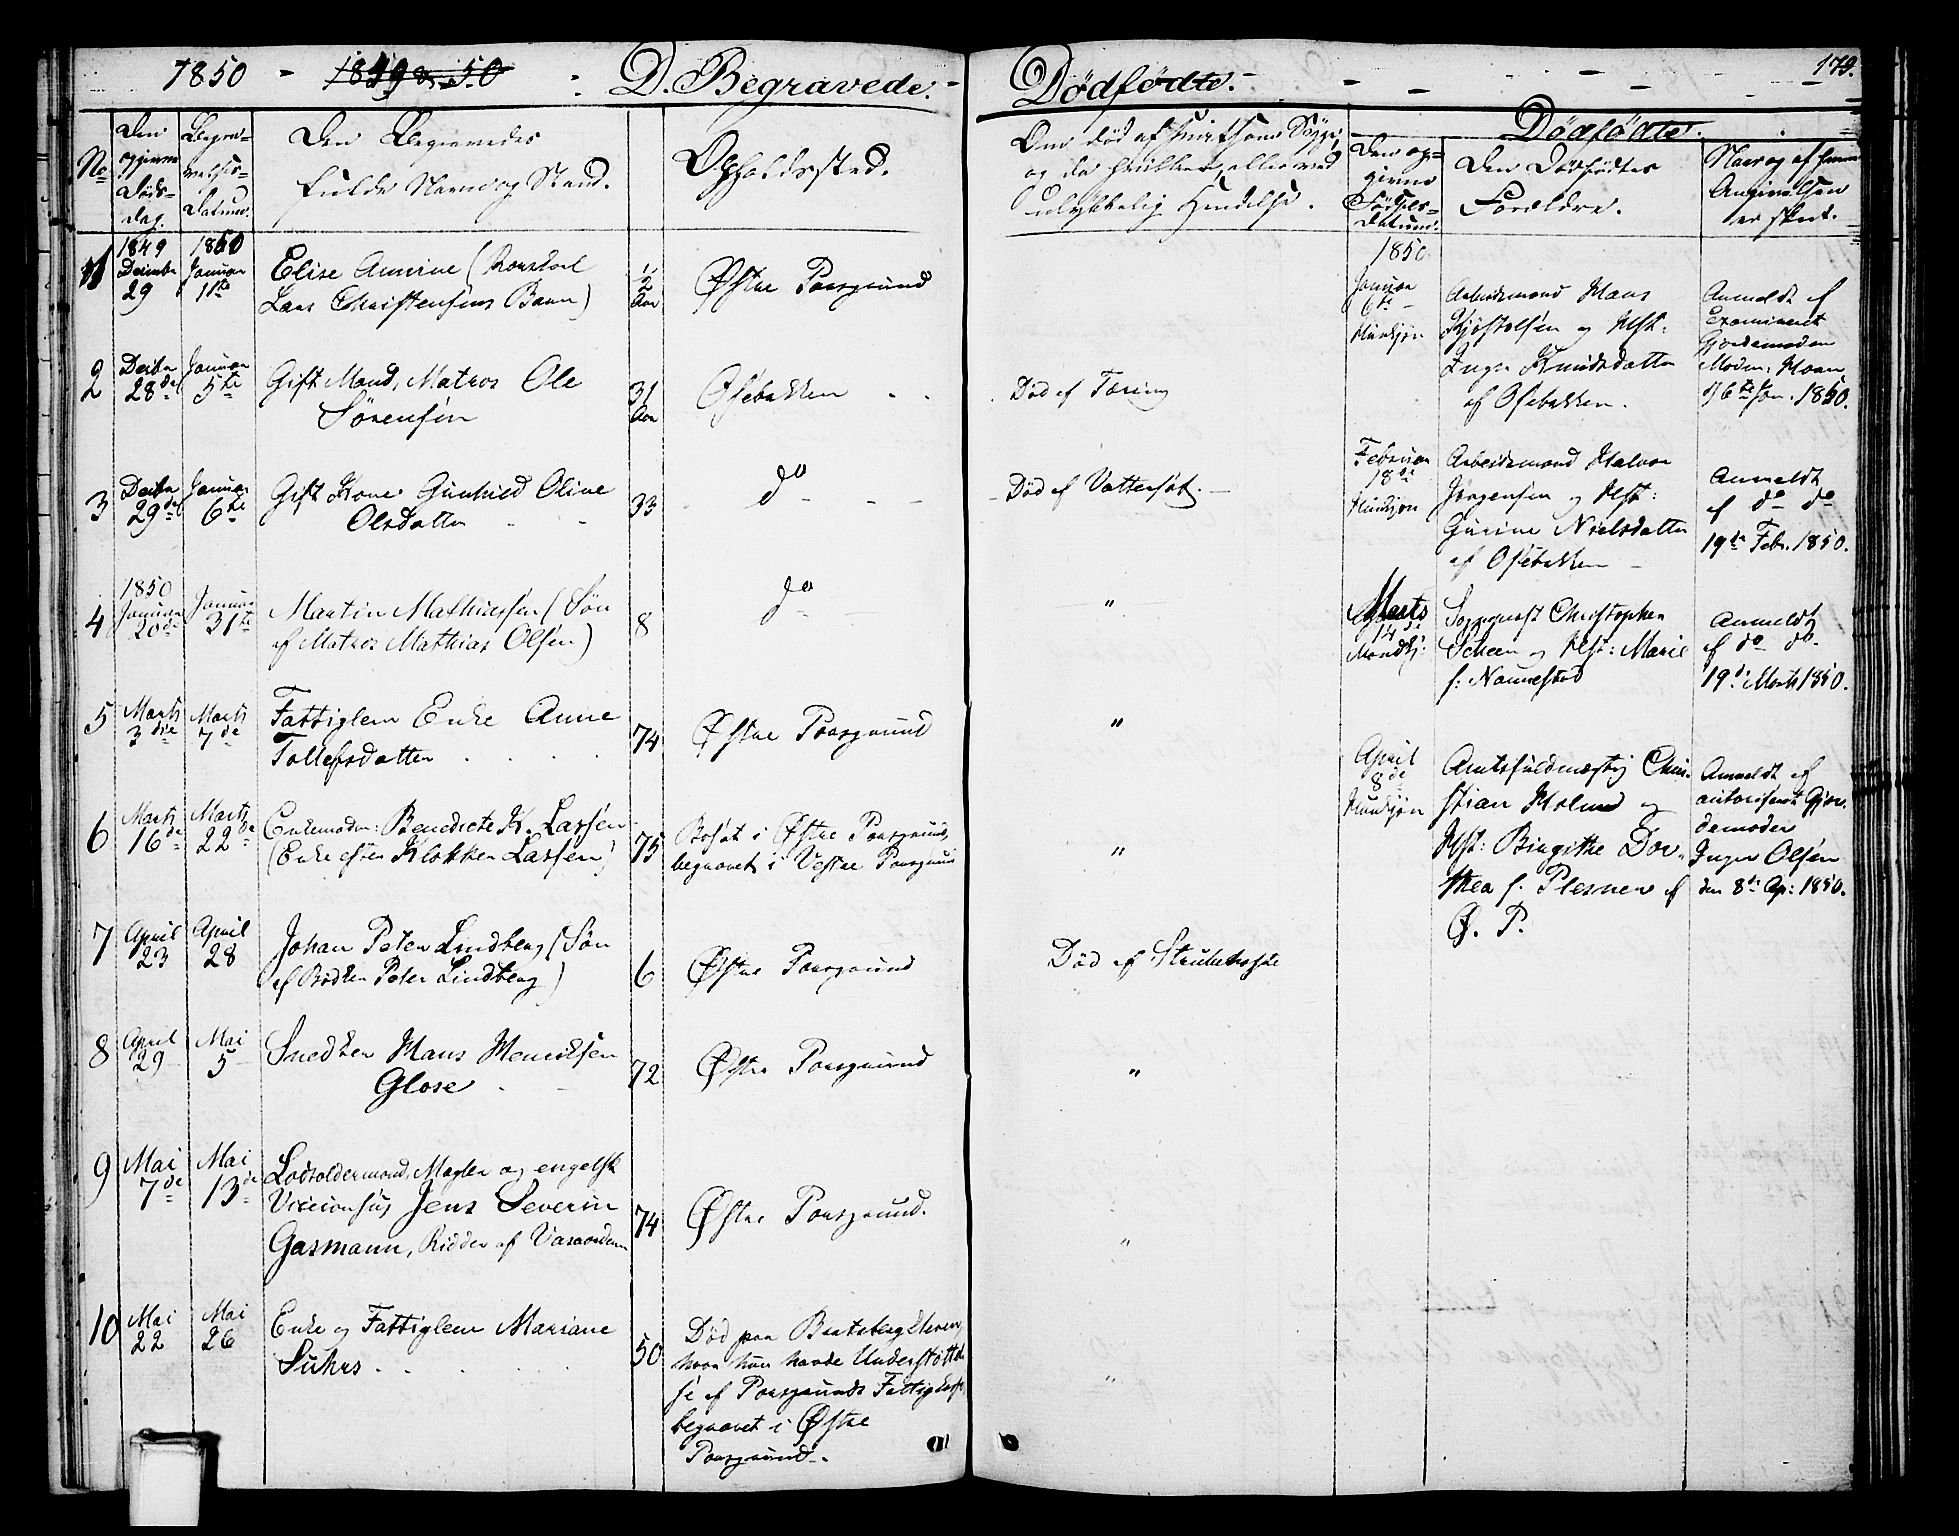 1850 - 1849 & 50 D. Begravede. Dødfødte. 179.
No
Den opgivne Døds-Dag.
Begravelses-Datum.
Den Begravedes
fulde Navn og Stand.
Opholdssted.
Om død af hvilken Syge,
og ulykkelig Hendelse.
Dødfødte.
Den opgivne Fødsels-Datum.
Den Dødfødtes
Forældre.
Naar og af hvem
Angivelsen
er skeet.
1 1849 Decembr 29 1850 Januar 11te
Elise Annine (Lars Christensens Barn) ½ Aar
Østre Porsgrund
2 Decbr 28de Januar 5te
Gift Mand, Matros Ole
Sørensen 31 Aar
Osebakken
Død af Tæring
3 Decbr 29de Januar 6te
Gift Kone Gunhild Oline
Olsdatter 33
do
Død af Vattersot.
4 1850 Januar 20de Januar 31te
Martin Mathiesen (Søn
af Matros Mathias Olsen) 8
do
"
5 Marts 3die Marts 7de
Fattiglem Enke Anne
Tollefsdatter 74
Østre Porsgrund
"
6 Marts 16de Marts 22de
Benedicte K. Lassen
(Enke efter Klokker Lassen) 75
Bosat i Østre Porsgrund,
begravet i Vestre Porsgrund
"
7 April 23 April 28
Johan Peter Lindberg (Søn
af Bødker Peter Lindberg) 6
Østre Porsgrund
Død af Strubehoste
8 April 29 Mai 5
Snedker Hans Henriksen
Glose 72
Østre Porsgrund
"
9 Mai 7de Mai 13de
Mægler og engelsk
Viceconsul Jens Severin
Gasmann, Ridder af Vasaordenen 74
Østre Porsgrund.
"
10 Mai 22 Mai 26
Enke og Fattiglem Mariane
Suhrs 50
Død paa Bratsbergkleven,
hvor hun havde Understøttel-
se af Porsgrunds Fattigkasse
begravet i Østre
Porsgrund.
"
1850
Januar 6te
Arbeidsmand Hans
Kjøstolsen og Hst:
Inger Knudsdatter
af Osebakken.
Anmeldt af
Examineret
Gjordemoder
d 6te Jan. 1850.
Februar 18de
Arbeidsmand Halvor
Jørgensen og Hst:
Gurine Nielsdatter
af Osebakken
Anmeldt
af do do
19de Febr. 1850.
Marts 14de
Christopher
Scheen og Hst: Marie
f: Nannestad
Anmeldt
af do do
19de Marts 1850.
April 8de
Amtsfuldmægtig Chri-
stian Holm og
Hst: Birgithe Dor-
thea f. Plesner af
Ø. P.
Anmeldt af
autoriseret Gjor-
demoder
Inger Olsen
den 8de Ap: 1850.